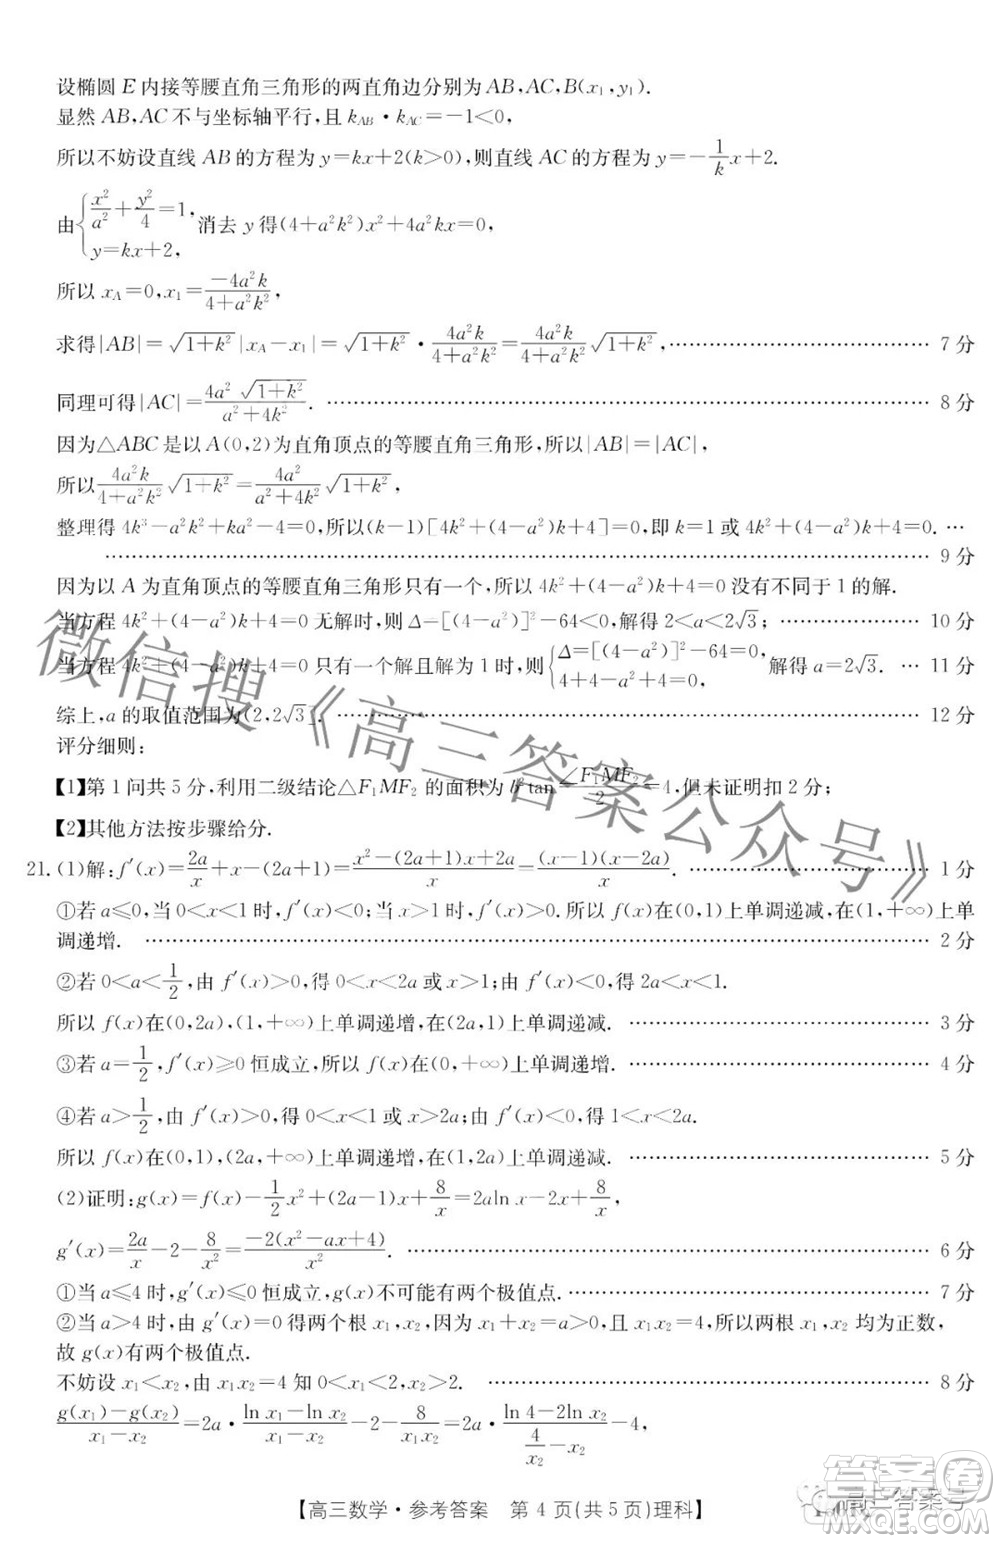 设椭圆 E 内接等腰直角三角形的两直角边分别为 AB,AC,B(x₁,y₁).
显然 AB,AC 不与坐标轴平行,且 k_AB·k_AC=-1<0,
所以不妨设直线 AB 的方程为 y=kx+2(k>0),则直线 AC 的方程为 y=-1/k x+2.
由{x²/a²+y²/4=1, y=kx+2, 消去 y 得(4+a²k²)x²+4a²kx=0,
所以 x_A=0,x₁=-4a²k/(4+a²k²),
求得|AB|=√(1+k²)|x_A-x₁|=√(1+k²)·4a²k/(4+a²k²)=4a²k/(4+a²k²)√(1+k²),…………7 分
同理可得|AC|=4a²√(1+k²)/(a²+4k²).…………8 分
因为△ABC 是以 A(0,2)为直角顶点的等腰直角三角形,所以|AB|=|AC|,
所以4a²k/(4+a²k²)√(1+k²)=4a²/(a²+4k²)√(1+k²),
整理得 4k³-a²k²+ka²-4=0,所以(k-1)[4k²+(4-a²)k+4]=0,即 k=1 或 4k²+(4-a²)k+4=0. …
…………9 分
因为以 A 为直角顶点的等腰直角三角形只有一个,所以 4k²+(4-a²)k+4=0 无解或者无不等于 1 的解.
当方程 4k²+(4-a²)k+4=0 无解时,则 Δ=[(4-a²)]²-64<0,解得 2<a<2√3; …………10 分
当方程 4k²+(4-a²)k+4=0 只有一个解且解为 1 时,则{Δ=[(4-a²)]²-64=0, 4+4-a²+4=0, 解得 a=2√3. …11 分
综上,a 的取值范围为(2,2√3]. …………12 分
评分细则:
【1】第 1 问共 5 分,利用二级结论△F₁MF₂ 的面积为 b²tan ∠F₁MF₂/2=4,但未证明扣 2 分;
【2】其他方法按步骤给分.
21.(1)解:f′(x)=2a/x+x-(2a+1)=(x²-(2a+1)x+2a)/x=(x-1)(x-2a)/x. …………1 分
①若 a≤0,当 0<x<1 时,f′(x)<0;当 x>1 时,f′(x)>0.所以 f(x)在(0,1)上单调递减,在(1,+∞)上单
调递增. …………2 分
②若 0<a<1/2,由 f′(x)>0,得 0<x<2a 或 x>1;由 f′(x)<0,得 2a<x<1.
所以 f(x)在(0,2a),(1,+∞)上单调递增,在(2a,1)上单调递减. …………3 分
③若 a=1/2,f′(x)≥0 恒成立,所以 f(x)在(0,+∞)上单调递增. …………4 分
④若 a>1/2,由 f′(x)>0,得 0<x<1 或 x>2a;由 f′(x)<0,得 1<x<2a.
所以 f(x)在(0,1),(2a,+∞)上单调递增,在(1,2a)上单调递减. …………5 分
(2)证明:g(x)=f(x)-1/2 x²+(2a-1)x+8/x=2aln x-2x+8/x,
g′(x)=2a/x-2-8/x²=-2(x²-ax+4)/x². …………6 分
①当 a≤4 时,g′(x)≤0 恒成立,g(x)不可能有两个极值点. …………7 分
②当 a>4 时,g′(x)=0 得两个根 x₁,x₂,因为 x₁+x₂=a,且 x₁x₂=4,所以两根 x₁,x₂ 均为正数,
故 g(x)有两个极值点.
不妨设 x₁<x₂,由 x₁x₂=4 知 0<x₁<2,x₂>2. …………8 分
(g(x₁)-g(x₂))/(x₁-x₂)=2a·(ln x₁-ln x₂)/(x₁-x₂)-2-8/(x₁x₂)=2a·(ln 4-2ln x₂)/(4/x₂-x₂)-4,
【高三数学·参考答案 第 4 页(共 5 页)理科】
微信搜《高三答案公众号》
高三答案号
答案圈